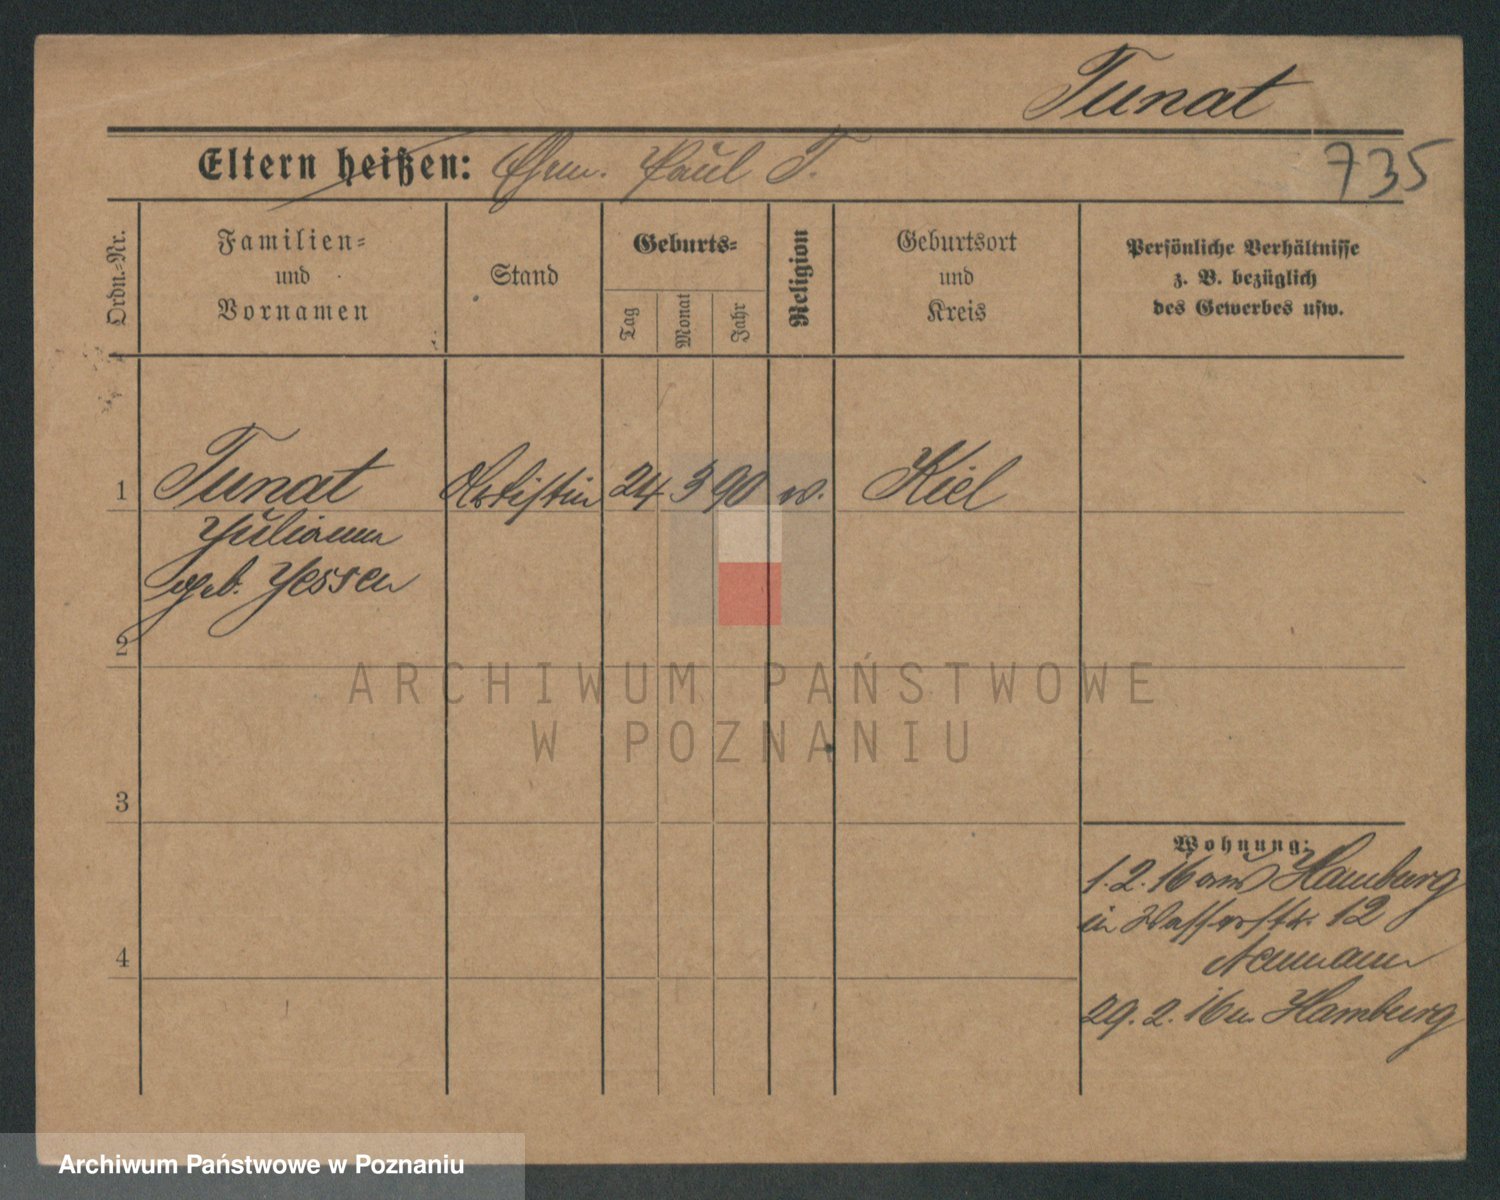 Tunat
Eltern heißen: Ehem. Paul T.
735
Ordn.-Nr.
Familien-
und
Vornamen
Stand
Geburts-
Tag
Monat
Jahr
Religion
Geburtsort
und
Kreis
Persönliche Verhältnisse
z. B. bezüglich
des Gewerbes usw.
1 Tunat Artistin 24 3 90 ev. Kiel
Julianna
geb. Jessen
2
ARCHIWUM PAŃSTWOWE
W POZNANIU
3
Wohnung:
1.2.16 aus Hamburg
in Wasserstr. 12
Neumann
4
29.2.16 n. Hamburg
Archiwum Państwowe w Poznaniu